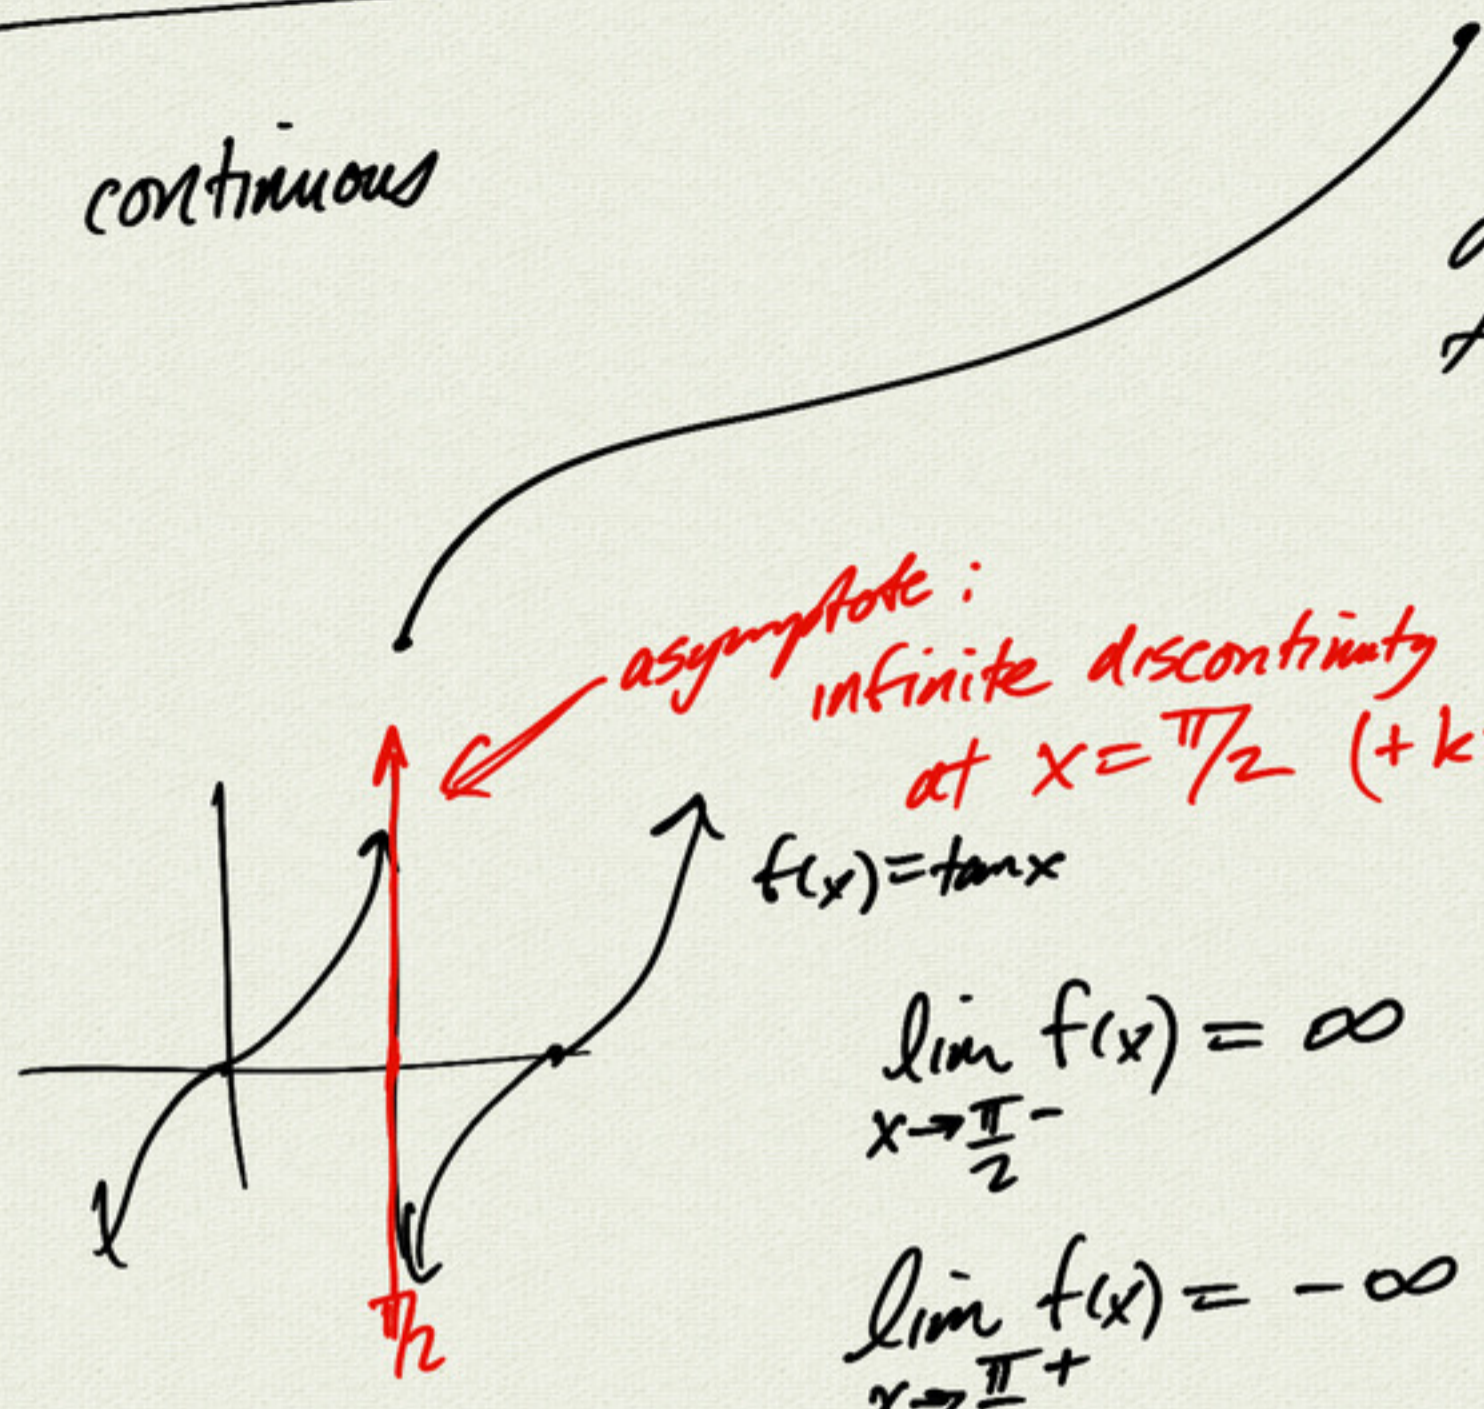 continuous
asymptote :
infinite discontinuity
at x = π/2 (+ k
f(x) = tan x
lim f(x) = ∞
x → π/2 -
lim f(x) = - ∞
x → π +
π/2